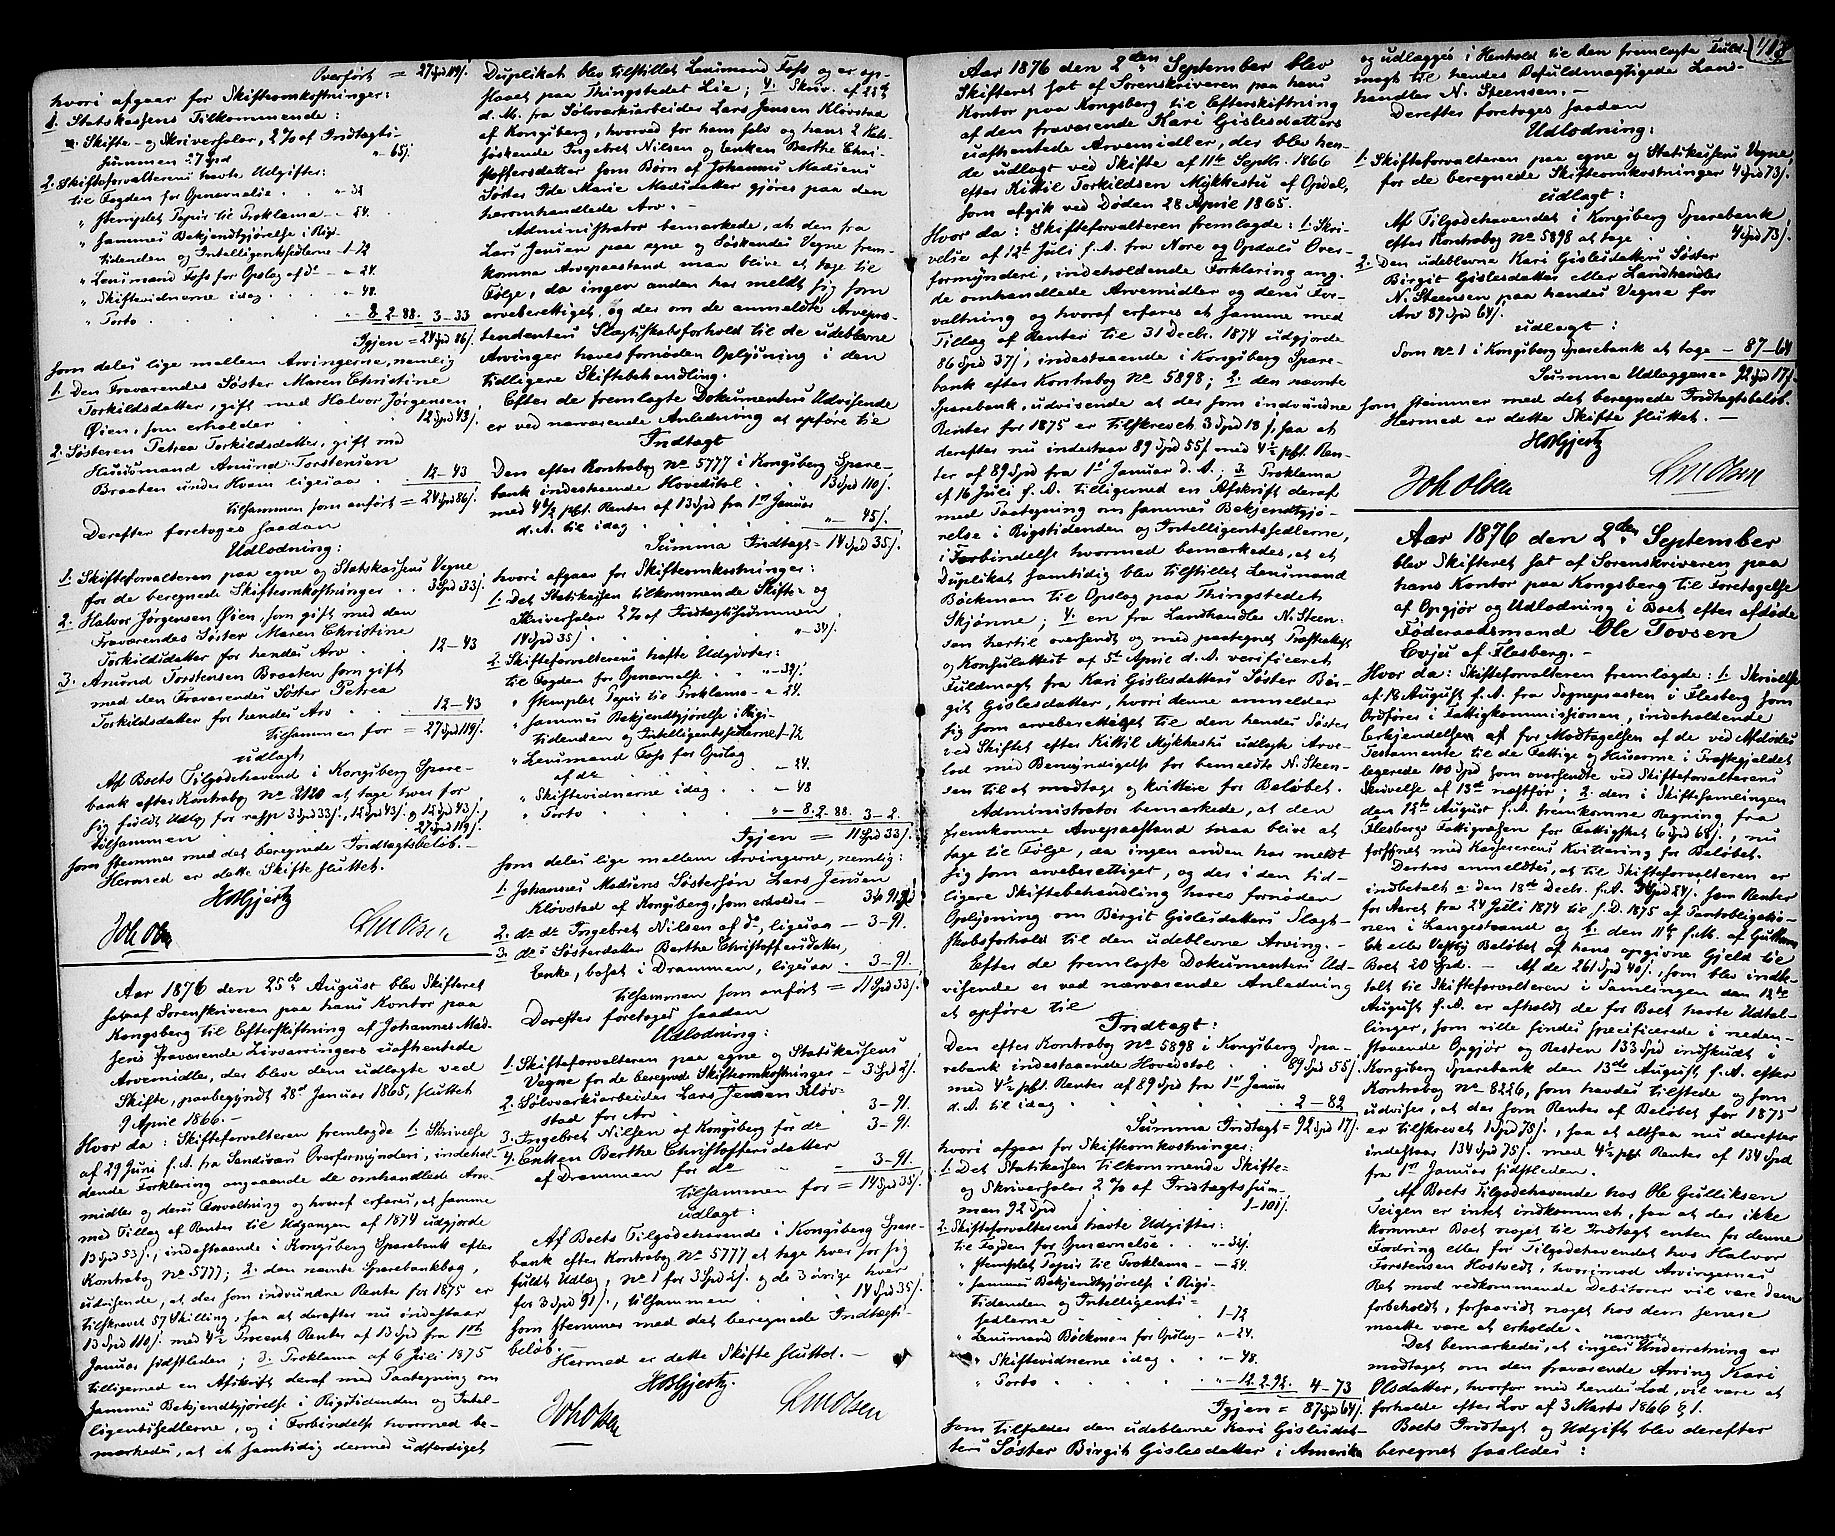 Overført = 27 Spd 119/.
hvori afgaar for Skifteomkostninger:
1. Statskassens Tilkommende:
Skifte- og Skriversalær, 2% af Indtægts-
summen 27 Spd " 65/.
2. Skifteforvalterens havte Udgifter:
til Fogden for Opnævnelse . "
" stemplet Papir til Proklama - " 24.
" sammes Bekjendtgjørelse i Rigs-
tidenden og Intelligentssedlerne 1-72
" Lensmand Foss for Opslag af do - " 24.
" Skiftevidnerne idag . . . " 48.
" Porto . . . " 8. 2-88. 3-33
Igjen = 24 Spd 86/.
som deles lige mellem Arvingerne, nemlig
1. Den Fraværendes Søster Maren Christine
Torkildsdatter, gift med Halvor Jørgensen
Øien, som erholder . . . 12 Spd 43/.
2. Søsteren Petrea Torkildsdatter, gift med
Huusmand Amund Torstensen
Braaten under Hvam ligesaa . 12-43
tilsammen som anført = 24 Spd 86/.
Derefter foretoges saadan
Udlodning:
1. Skifteforvalteren paa egne og Statskassens Vegne
for de beregnede Skifteomkostninger . . 3 Spd 33/.
2. Halvor Jørgensen Øien, som gift med den
Fraværendes Søster Maren Christine
Torkildsdatter for hendes Arv . 12-43
3. Amund Torstensen Braaten som gift
med den Fraværendes Søster Petrea
Torkildsdatter for hendes Arv . 12-43
tilsammen for = 27 Spd 119/.
udlagt,
Af Boets Tilgodehavende i Kongsberg Spare-
bank efter Kontrabog No 2120 at tage hver for
sig fuldt Udlæg for resp 3 Spd 33/, 12 Spd 43/ og 12 Spd 43/,
tilsammen . . . 27 Spd 119/.
som stemmer med det beregnede Indtægtsbeløb. -
Hermed er dette Skifte sluttet.
Joh Olsen LM Olsen
Aar 1876 den 25de August blev Skifteret
sat af Sorenskriveren paa hans Kontor paa
Kongsberg til Efterskiftning af Johannes Mad-
sens fraværende Livsarvingers uafhentede
Arvemidler, der bleve dem udlagte ved
Skifte, paabegyndt 28de Januar 1865, sluttet
9 April 1866. -
Hvor da: Skifteforvalteren fremlagde 1. Skrivelse
af 29 Juni f.A. fra Sandsværs Overformynderi, indehol-
dende Forklaring angaaende de omhandlede Arve-
midler og deres Forvaltning og hvoraf erfares, at samme
med Tillæg af Renter til Udgangen af 1874 udgjorde
13 Spd 53/, indestaaende i Kongsberg Sparebank efter
Kontrabog No 5777; 2. den nævnte Sparebankbog,
udvisende, at der som indvundne Renter for 1875 er
tilskrevet 57 Skilling, saa at derefter nu indestaar
13 Spd 110/ med 4½ Procent Renter af 13 Spd fra 1ste
Januar sidstleden; 3. Proklama af 6 Juli 1875
tilligemed en Afskrift deraf med Paategning om
sammes Bekjendtgjørelse i Rigstidenden og Intel-
ligentssedlerne, og i Forbindelse hvormed be-
mærkedes, at et samtidig dermed udfærdiget
Duplikat blev tilstillet Lensmand Foss og er op-
slaaet paa Thingstedet Lia; 4. Skriv. af 23de
d. M. fra Sølvværkarbeider Lars Jensen Klövstad
af Kongsberg, hvorved for ham selv og hans 2 Halv-
søskende Ingebret Nilsen og Enken Berthe Chri-
stoffersdatter som Børn af Johannes Madsens
Søster Ide Marie Madsdatter gjøres paa den
heromhandlede Arv. -
Administrator bemærkede, at den fra
Lars Jensen paa egne og Søskendes Vegne frem-
komne Arvepaastand maa blive at tage til
Følge, da ingen anden har meldt sig som
arveberettiget, og der om de anmeldte Arvepræ-
tendenters Slægtskabsforhold til de udeblevne
Arvinger haves fornøden Oplysning i den
tidligere Skiftebehandling.
Efter de fremlagte Dokumenters Udvisende
er ved nærværende Anledning at opføre til
Indtægt
Den efter Kontrabog No 5777 i Kongsberg Spare-
bank indestaaende Hovedstol . . 13 Spd 110/.
med 4½ pCt. Renter af 13 Spd fra 1ste Januar
d. A. til idag . . . " - 45/.
Summa Indtægt = 14 Spd 35/.
hvori afgaar for Skifteomkostninger:
1. Det Statskassen tilkommende Skifte- og
Skriversalær 2% af Indtægtssummen
14 Spd 35/ . . . " - 34/.
2. Skifteforvalterens havte Udgifter:
til Fogden for Opnævnelse . .
" stemplet Papir til Proklama - " 24.
" sammes Bekjendtgjørelse i Rigs-
tidenden og Intelligentssedlerne 1-72
" Lensmand Foss for Opslag
af do . . . - 24.
" Skiftevidnerne idag . . - 48
" Porto . . . " - 8. 2. 88. 3-2.
Igjen = 11 Spd 33/.
som deles lige mellem Arvingerne, nemlig:
1. Johannes Madsens Søstersøn Lars Jensen
Klövstad af Kongsberg, som erholder - 3 Spd 91/.
2. do do Ingebret Nilsen af do, ligesaa - 3-91.
3. do s Søsterdatter Berthe Christoffersdatter,
Enke, bosat i Drammen, ligesaa . 3-91.
tilsammen som anført = 11 Spd 33/.
Derefter foretoges saadan
Udlodning:
1. Skifteforvalteren paa egne og Statskassens
Vegne for de beregnede Skifteomkostninger - 3 Spd 2/.
2. Sølvværkarbeider Lars Jensen Klöv-
stad for Arv . . . 3-91.
3. Ingebret Nilsen af Kongsberg for do 3-91.
4. Enken Berthe Christoffersdatter
af Drammen for do . . 3-91.
tilsammen for = 14 Spd 35/.
udlagt:
Af Boets Tilgodehavende i Kongsberg Spare-
bank efter Kontrabog No 5777 at tage hver for sig
fuldt Udlæg, No 1 for 3 Spd 2/. og de 3 øvrige hver
for 3 Spd 91/., tilsammen . . 14 Spd 35/.
som stemmer med det beregnede Indtægts-
beløb.
Hermed er dette Skifte sluttet. -
Joh Olsen LM Olsen
418
Aar 1876 den 2den September blev
Skifteret sat af Sorenskriveren paa hans
Kontor paa Kongsberg til Efterskiftning
af den fraværende Kari Gislesdatters
uafhentede Arvemidler, der blev hen-
de udlagt ved Skifte af 11te Septbr. 1866
efter Kittil Torkildsen Mykkestu af Opdal,
som afgik ved Døden 28 April 1865.
Hvor da: Skifteforvalteren fremlagde: 1. Skri-
velse af 12te Juli f. A. fra Nore og Opdals Over-
formynderi, indeholdende Forklaring ang.
de omhandlede Arvemidler og deres For-
valtning og hvoraf erfares at samme med
Tillæg af Renter til 31 Decbr. 1874 udgjorde
86 Spd 37/, indestaaende i Kongsberg Spare-
bank efter Kontrabog No 5898; 2. den nævnte
Sparebankbog, udvisende at der som indvundne
Renter for 1875 er tilskrevet 3 Spd 18/, saa at
derefter nu indestaar 89 Spd 55/ med 4½ pCt. Ren-
ter af 89 Spd fra 1ste Januar d. A.; 3. Proklama
af 16 Juli f. A. tilligemed en Afskrift deraf
med Paategning om sammes Bekjendtgjø-
relse i Rigstidenden og Intelligentssedlerne,
i Forbindelse hvormed bemærkedes, at et
Duplikat samtidig blev tilstillet Lensmand
Böckman til Opslag paa Thingstedet
Skjønne; 4. en fra Landhandler N. Steen-
sen hertil oversendt og med paategnet
og Konsulattest af 5te April d. A. verificeret
Fuldmagt fra Kari Gislesdatters Søster Bir-
git Gislesdatter, hvori denne anmelder
sig som arveberettiget til den hendes Søster
ved Skiftet efter Kittil Mykkestu udlagte Arve-
lod med Bemyndigelse for bemeldte N. Steen-
sen til at modtage og kvittere for Beløbet.
Administrator bemærkede, at den
fremkomne Arvepaastand maa blive at
tage til Følge, da ingen anden har meldt
sig som arveberettiget, og der i den tid-
ligere Skiftebehandling haves fornøden
Oplysning om Birgit Gislesdatters Slægt-
skabsforhold til den udeblevne Arving. -
Efter de fremlagte Dokumenters Ud-
visende er ved nærværende Anledning
at opføre til
Indtægt:
Den efter Kontrabog No 5898 i Kongsberg Spa-
rebank indestaaende Hovedstol . . 89 Spd 55/.
med 4½ pCt. Renter af 89 Spd fra 1ste Januar
d. A. til idag . . . 2-82
Summa Indtægt = 92 Spd 17/.
hvori afgaar for Skifteomkostninger:
1. Det Statskassen tilkommende Skifte-
og Skriversalær 2% af Indtægtssum-
men 92 Spd . . 1-101/.
2. Skifteforvalterens havte Udgifter:
til Fogden for Opnævnelse . .
" stemplet Papir til Proklama - " - 24.
" sammes Bekjendtgjørelse i Rigs-
tidenden og Intelligents-
sedlerne . . . 1-72
" Lensmand Böckman for Opslag - " - 24.
" Skiftevidnerne idag . . " - 48.
" Porto . . . " - 12. 2. 92. 4-73
Igjen = 87 Spd 64/.
som tilfalder den udeblevne Kari Gislesdat-
ters Søster Birgit Gislesdatter i Amerika
og udlægges i Henhold til den fremlagte Fuld-
magt til hendes Befuldmægtigede Land-
handler N. Steensen. -
Derefter foretoges saadan
Udlodning:
1. Skifteforvalteren paa egne og Statskassens Vegne,
for de beregnede Skifteomkostninger 4 Spd 73/.
udlagt:
Af Tilgodehavendet i Kongsberg Sparebank
efter Kontrabog No 5898 at tage . 4 Spd 73/.
2. Den udeblevne Kari Gislesdatters Søster
Birgit Gislesdatter eller Landhandler
N. Steensen paa hendes Vegne for
Arv 87 Spd 64/.
udlagt:
Som No 1 i Kongsberg Sparebank at tage - 87-64
Summa Udlæggene 92 Spd 17/.
som stemmer med det beregnede Indtægtsbeløb.
Hermed er dette Skifte sluttet.
Joh Olsen LM Olsen
Aar 1876 den 2den September
blev Skifteret sat af Sorenskriveren paa
hans Kontor paa Kongsberg til Foretagelse
af Opgjør og Udlodning i Boet efter afdøde
Føderaadsmand Ole Tovsen
Evju af Flesberg. -
Hvor da: Skifteforvalteren fremlagde: 1. Skrivelse
af 18 August f. A. fra Sognepræsten i Flesberg som
Ordfører i Fattigkommissionen, indeholdende
Erkjendelse af for Modtagelsen af de ved Afdødes
Testamente til de Fattige og Husarme i Præstegjeldet
legerede 100 Spd som oversendte ved Skifteforvalterens
Skrivelse af 13de næstfør; 2. den i Skiftesamlingen
den 12te August f. A. fremkomne Regning fra
Flesbergs Fattigvæsen for Fattigskat 6 Spd 68/, nu
forsynet med Kassererens Kvittering for Beløbet.
Derhos anmeldtes, at til Skifteforvalteren er
indbetalt a. den 18de Decbr. f. A. som Renter
for Aaret fra 24 Juli 1874 til s. D. 1875 af Panteobligatio-
nen i Langestrand og b. den 11te f. M. af
Beløbet af hans opgivne Gjeld til
Boet 20 Spd. - Af de 261 Spd 40/., som blev indbe-
talt til Skifteforvalteren i Samlingen den 12te
August f. A. er afholdt de for Boet havte Udtæl-
linger, som ville findes specificerede i neden-
staaende Opgjør og Resten 133 Spd indskudt i
Kongsberg Sparebank den 13de August f. A. efter
Kontrabog No 8226, som havdes tilstede og som
udviser, at der som Renter af Beløbet for 1875
er tilskrevet 1 Spd 75/., saa at altsaa nu derefter
indestaar 134 Spd 75/. med 4½ pCt Renter af 134 Spd
fra 1ste Januar sidstleden.
Af Boets Tilgodehavende hos Ole Gulliksen
Teigen er intet indkommet, saa at der ikke
kommer Boet noget til Indtægt enten for denne
Fordring eller for Tilgodehavendet hos Halvor
Torstensen Hostvedt, hvorimod Arvingernes
Ret mod vedkommende Debitorer vil være dem
forbeholdt, forsaavidt noget hos dem senere
maatte være at erholde.
Det bemærkedes, at ingen nærmere Underretning er
modtaget om den fraværende Arving Kari
Olsdatter, hvorfor med hendes Lod, vil være at
forholde efter Lov af 3 Marts 1866 § 1.
Boets Indtægt og Udgift blev derefter
beregnet saaledes: